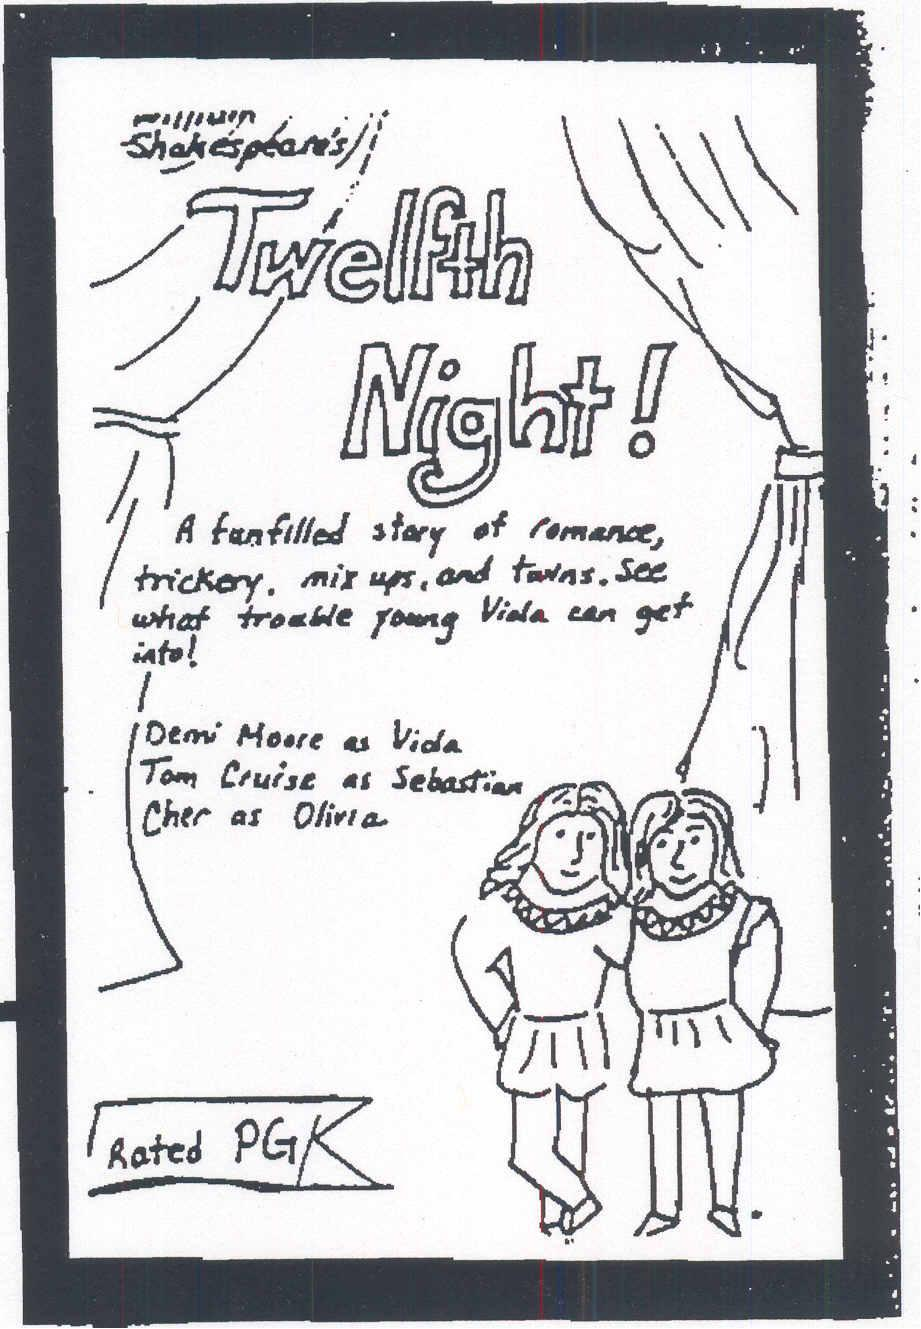 William
Shakespeare's
Twelfth
Night!
A funfilled story of romance,
trickery, mix ups, and twins. See
what trouble young Viola can get
into!
Demi Moore as Viola
Tom Cruise as Sebastian
Cher as Olivia
Rated PG